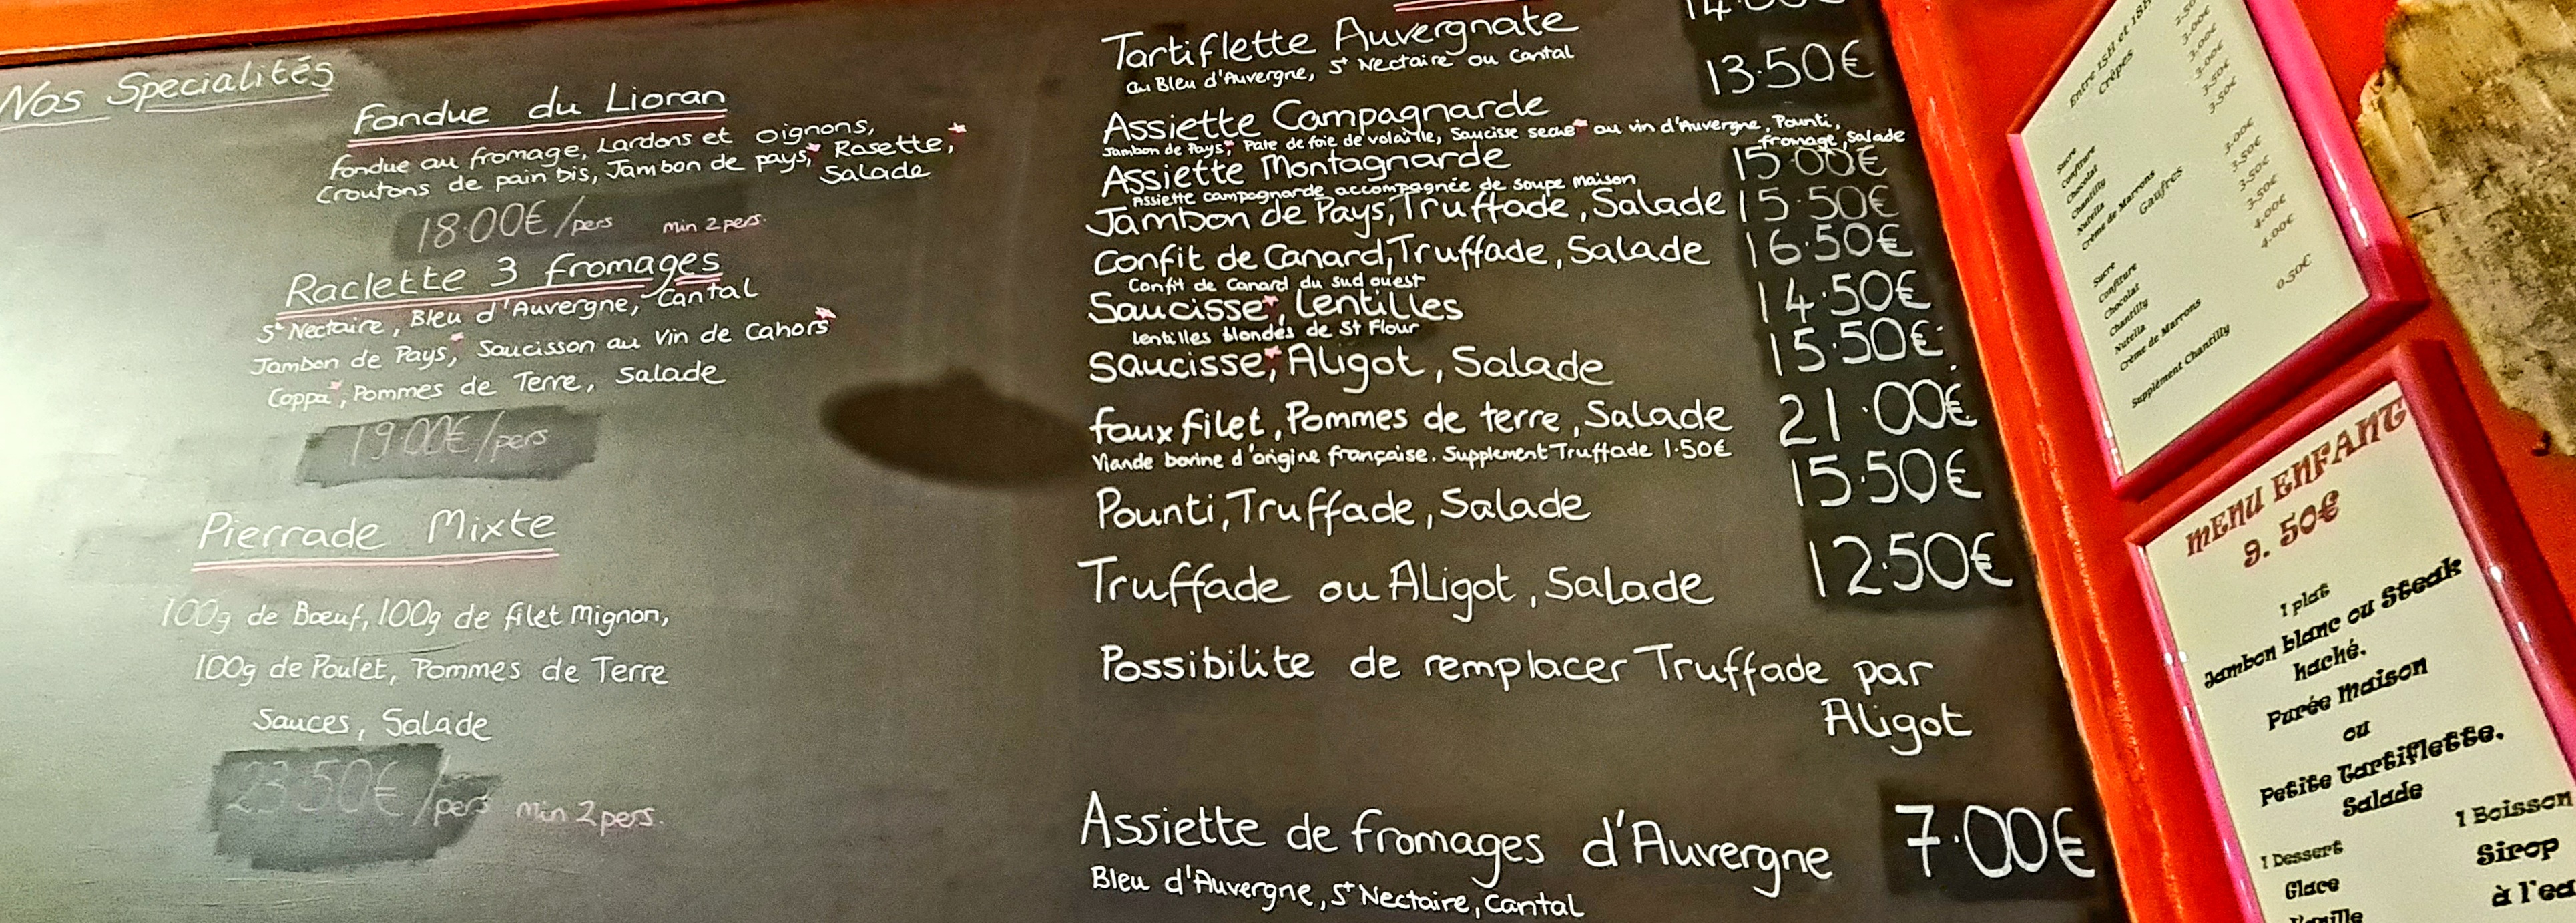 Nos Specialités
Fondue du Lioran
Fondue au fromage, Lardons et oignons,
Croutons de pain bis, Jambon de pays,* Rosette,*
Salade
18.00€/pers min 2 pers.
Raclette 3 fromages
St Nectaire, Bleu d'Auvergne, Cantal
Jambon de Pays,* Saucisson au Vin de Cahors*
Coppa*, Pommes de Terre, Salade
19.00€/pers
Pierrade Mixte
100g de Bœuf, 100g de filet Mignon,
100g de Poulet, Pommes de Terre
Sauces, Salade
23.50€/pers min 2 pers.
Tartiflette Auvergnate
au Bleu d'Auvergne, St Nectaire ou Cantal
13.50€
Assiette Campagnarde
Jambon de Pays*, Pate de foie de volaille, Saucisse seche* au vin d'Auvergne, Pounti,
fromage, Salade
Assiette Montagnarde 15.00€
Assiette campagnarde accompagnée de soupe maison
Jambon de Pays, Truffade, Salade 15.50€
Confit de Canard, Truffade, Salade 16.50€
Confit de Canard du sud ouest
Saucisse*, Lentilles 14.50€
Lentilles blondes de St Flour
Saucisse*, Aligot, Salade 15.50€
faux filet, Pommes de terre, Salade 21.00€
Viande bovine d'origine française. Supplement Truffade 1.50€
Pounti, Truffade, Salade 15.50€
Truffade ou Aligot, Salade 12.50€
Possibilite de remplacer Truffade par
Aligot
Assiette de fromages d'Auvergne 7.00€
Bleu d'Auvergne, St Nectaire, Cantal
Entre 15H et 18H
Crêpes
Sucre
Confiture
Chocolat
Chantilly
Nutella
Crème de Marrons
3.00€
3.00€
3.00€
3.50€
3.50€
Gaufres
Sucre 3.00€
Confiture 3.50€
Chocolat 3.50€
Chantilly 3.50€
Nutella 4.00€
Crème de Marrons 4.00€
Supplément Chantilly 0.50€
MENU ENFANT
9.50€
1 plat
Jambon blanc ou Steak
haché.
Purée Maison
ou
Petite Tartiflette.
Salade
1 Dessert
Glace
1 Boisson
Sirop
à l'eau